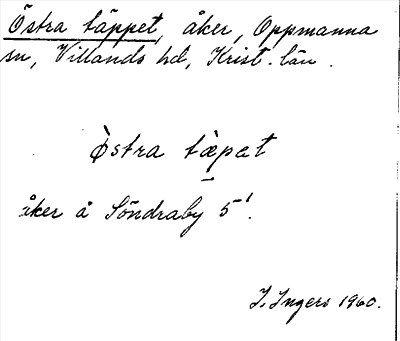 Östra täppet, åker, Oppmanna
sn, Villands hd, Krist. län.
Òstra tæ̀pat
åker å Söndraby 5¹.
I. Ingers 1960.